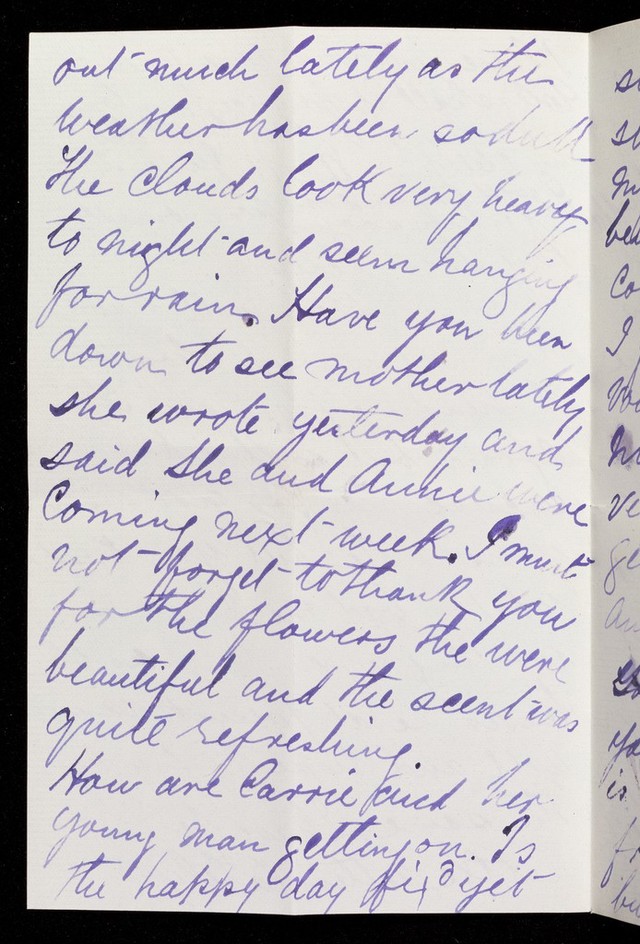 out much lately as the
weather has been so dull
The clouds look very heavy
to night and seem hanging
for rain. Have you been
down to see mother lately
she wrote yesterday and
said she and Annie were
coming next week. I must
not forget to thank you
for the flowers the were
beautiful and the scent was
quite refreshing.
How are Carrie and her
young man getting on. Is
the happy day fix'd yet